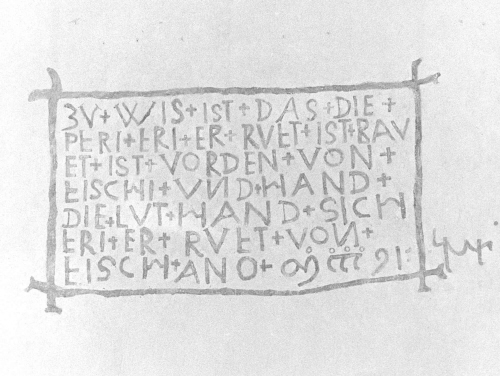 ZV+WIS+IST+DAS+DIE+
PERI+ERI+ER+RVET+IST+BAV
ET+IST+VORDEN+VON+
EISCHI+VND+HAND+
DIE+LVT+HAND+SICH
ERI+ER+RVET+VON+
EISCH+ANO+ m cccc 91: